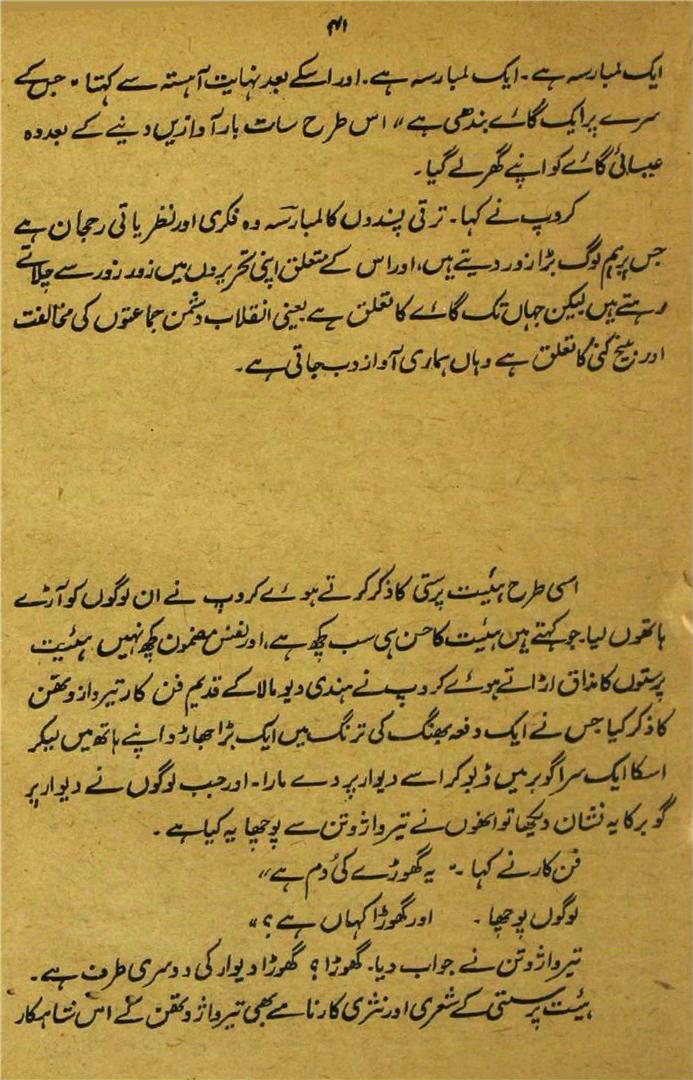 ۴۱
ایک لمبا رسہ ہے۔ ایک لمبا رسہ ہے۔ اور اسکے بعد نہایت آہستہ سے کہتا "جس کے
سرے پر ایک گائے بندھی ہے" اس طرح سات بار آوازیں دینے کے بعد وہ
عیسائی گائے کو اپنے گھر لے گیا۔
کروپ نے کہا۔ ترقی پسندوں کا لمبا رسہ وہ فکری اور نظریاتی رحجان ہے
جس پر ہم لوگ بڑا زور دیتے ہیں، اور اس کے متعلق اپنی تحریروں میں زور زور سے چلاتے
رہتے ہیں لیکن جہاں تک گائے کا تعلق ہے یعنی انقلاب دشمن جماعتوں کی مخالفت
اور بیخ کنی کا تعلق ہے وہاں ہماری آواز دب جاتی ہے۔
اسی طرح ہئیت پرستی کا ذکر کرتے ہوئے کروپ نے ان لوگوں کو آڑے
ہاتھوں لیا۔ جو کہتے ہیں ہئیت کا حسن ہی سب کچھ ہے، اور نفس مضمون کچھ نہیں ہئیت
پرستوں کا مذاق اڑاتے ہوئے کروپ نے ہندی دیو مالا کے قدیم فن کار تیرواژوتھن
کا ذکر کیا جس نے ایک دفعہ بھنگ کی ترنگ میں ایک بڑا جھاڑو اپنے ہاتھ میں لیکر
اسکا ایک سرا گوبر میں ڈبو کر اسے دیوار پر دے مارا۔ اور جب لوگوں نے دیوار پر
گوبر کا یہ نشان دیکھا تو انھوں نے تیرواژوتن سے پوچھا یہ کیا ہے۔
فن کار نے کہا۔ "یہ گھوڑے کی دُم ہے"
لوگوں پوچھا۔ اور گھوڑا کہاں ہے؟"
تیرواژوتن نے جواب دیا۔ گھوڑا؟ گھوڑا دیوار کی دوسری طرف ہے۔
ہیئت پرستی کے شعری اور نثری کارنامے بھی تیرواژوتھن کے اس شاہکار